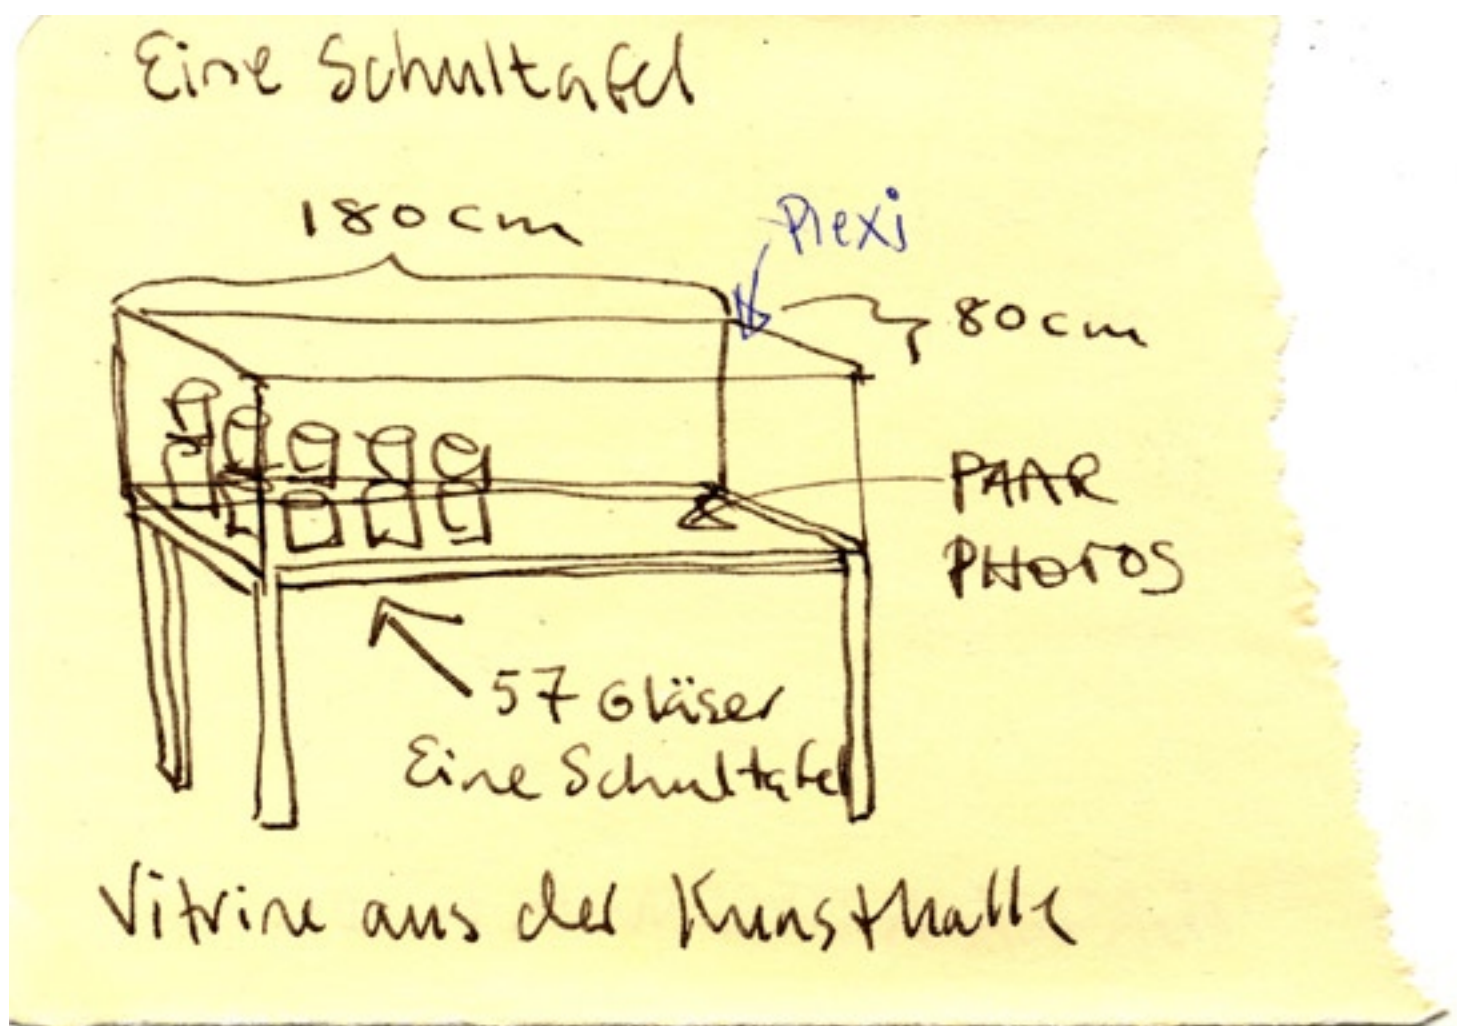 Eine Schultafel
180cm
Plexi
80cm
PAAR
PHOTOS
57 Gläser
Eine Schultafel
Vitrine aus der Kunsthalle